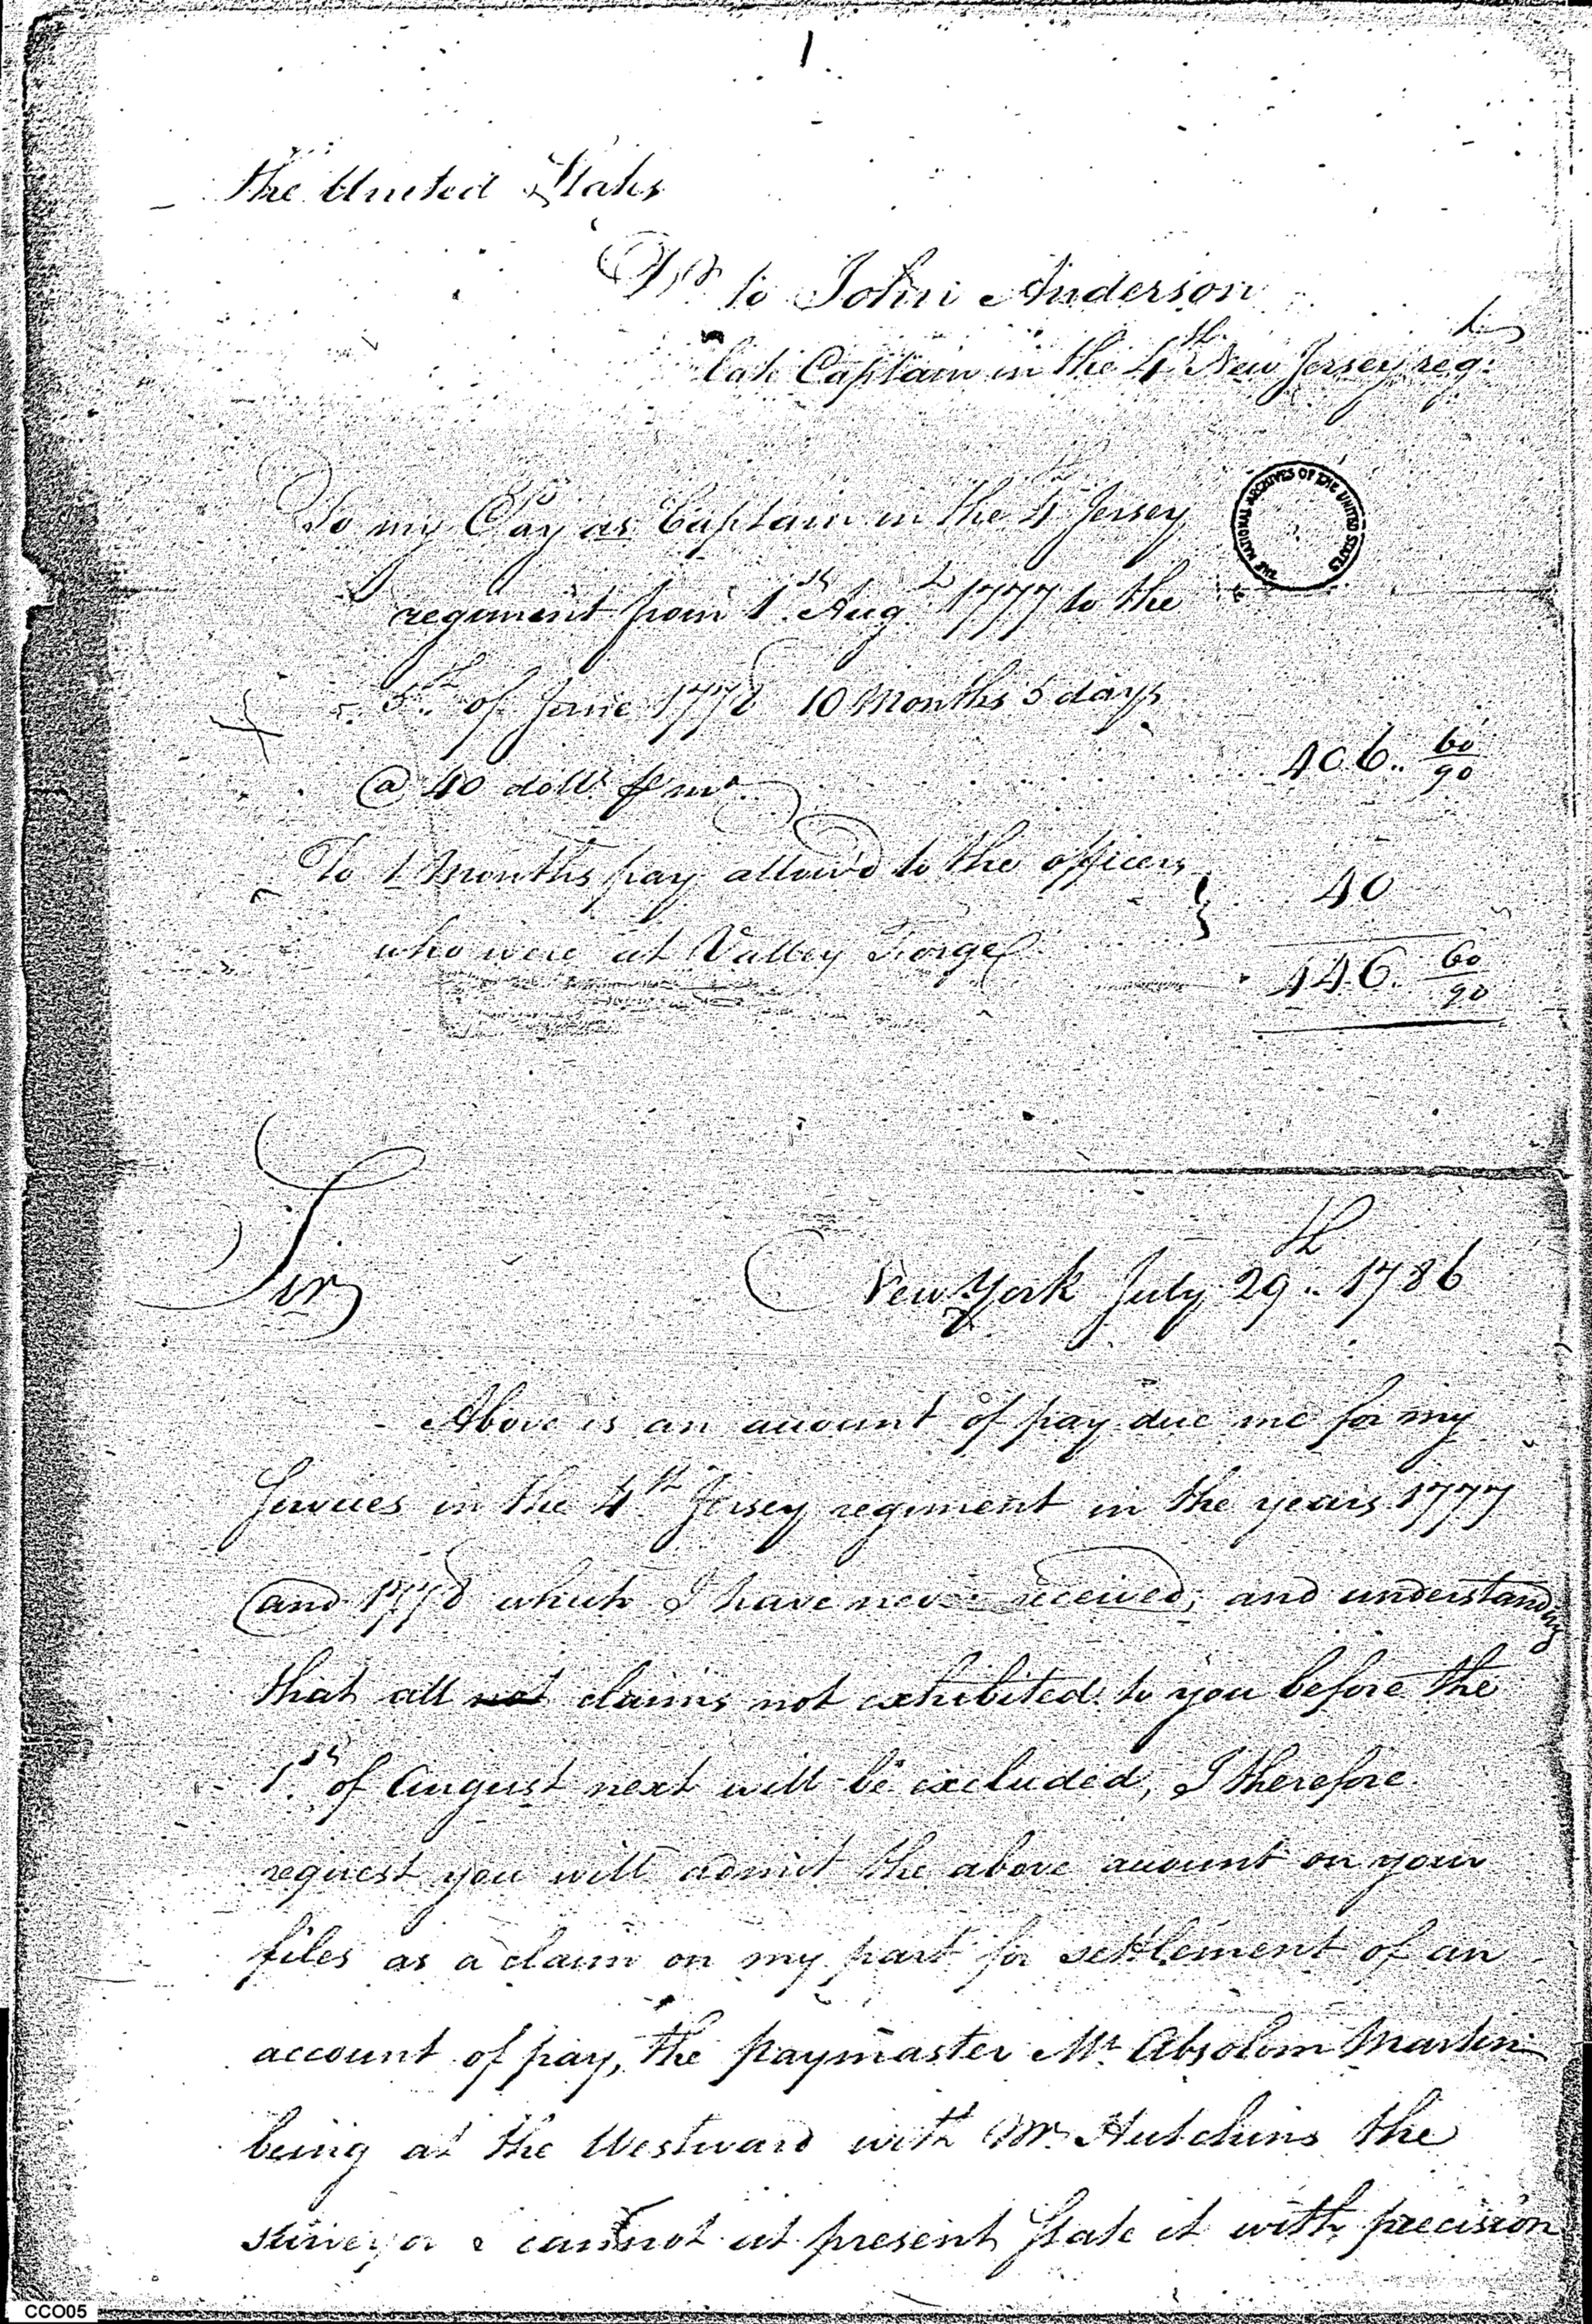 1
The United States
Dr to John Anderson
late Captain in the 4th New Jersey regt
To my Pay as Captain in the 4th Jersey
THE NATIONAL ARCHIVES OF THE UNITED STATES
regiment from 1st Augt 1777 to the
5th of June 1778 10 Months 5 days
@ 40 dolls pr mo 406 60/90
To 1 Months pay allow'd to the officers
40
who were at Valley Forge
446 60/90
Sir
New York July 29th 1786
Above is an account of pay due me for my
Services in the 4th Jersey regiment in the years 1777
and 1778 which I have never received, and understanding
that all not claims not exhibited to you before the
1st of August next will be excluded, I therefore
request you will admit the above account on your
files as a claim on my part for settlement of an
account of pay, the paymaster Mr Absolom Martin
being at the Westward with Mr Hutchins the
surveyor I cannot at present state it with precision
CCO05